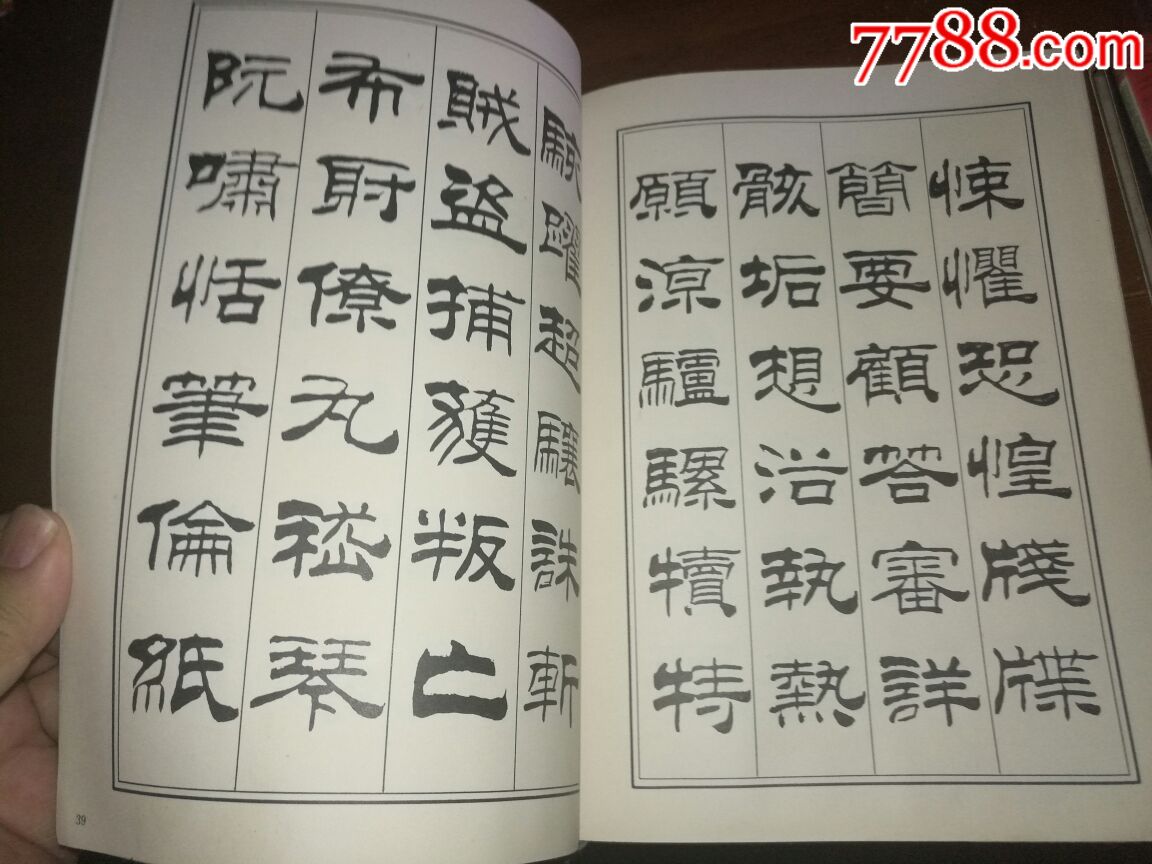 7788.com
悚懼恐惶牋牒
簡要顧答審詳
骸垢想浴執熱
願涼驢騾犢特
駭躍超驤誅斬
賊盜捕獲叛亡
布射僚丸嵇琴
阮嘯恬筆倫紙
39